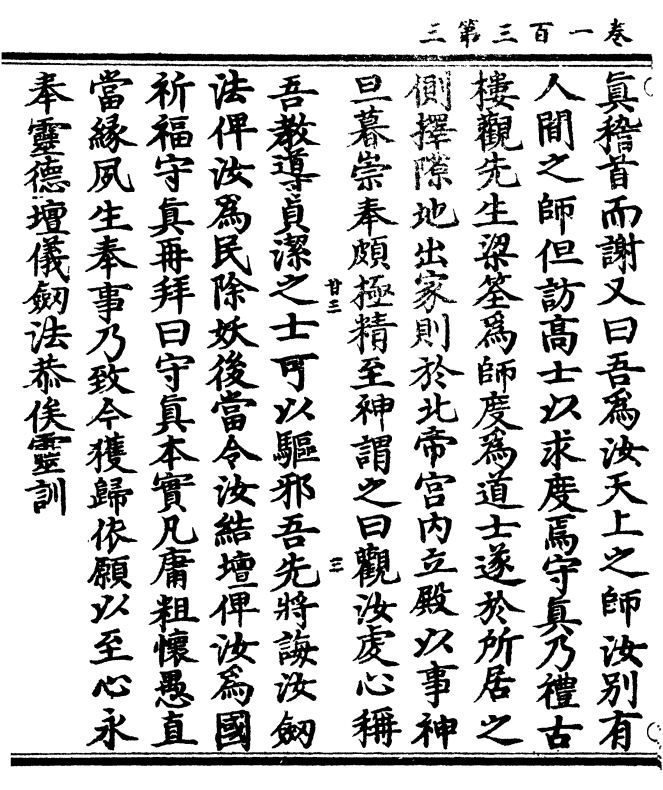 卷一百三第三
真稽首而謝又曰吾為汝天上之師汝別有
人間之師但訪高士以求度焉守真乃禮古
樓觀先生梁筌為師度為道士遂於所居之
側擇隙地出家則於北帝宫内立殿以事神
旦暮崇奉頗極精至神謂之曰觀汝虔心稱
廿三
三
吾教導貞潔之士可以驅邪吾先將誨汝劒
法俾汝為民除妖後當令汝結壇俾汝為國
祈福守真再拜曰守真本實凡庸粗懷愚直
當緣夙生奉事乃致今獲歸依願以至心永
奉靈德壇儀劒法恭俟靈訓